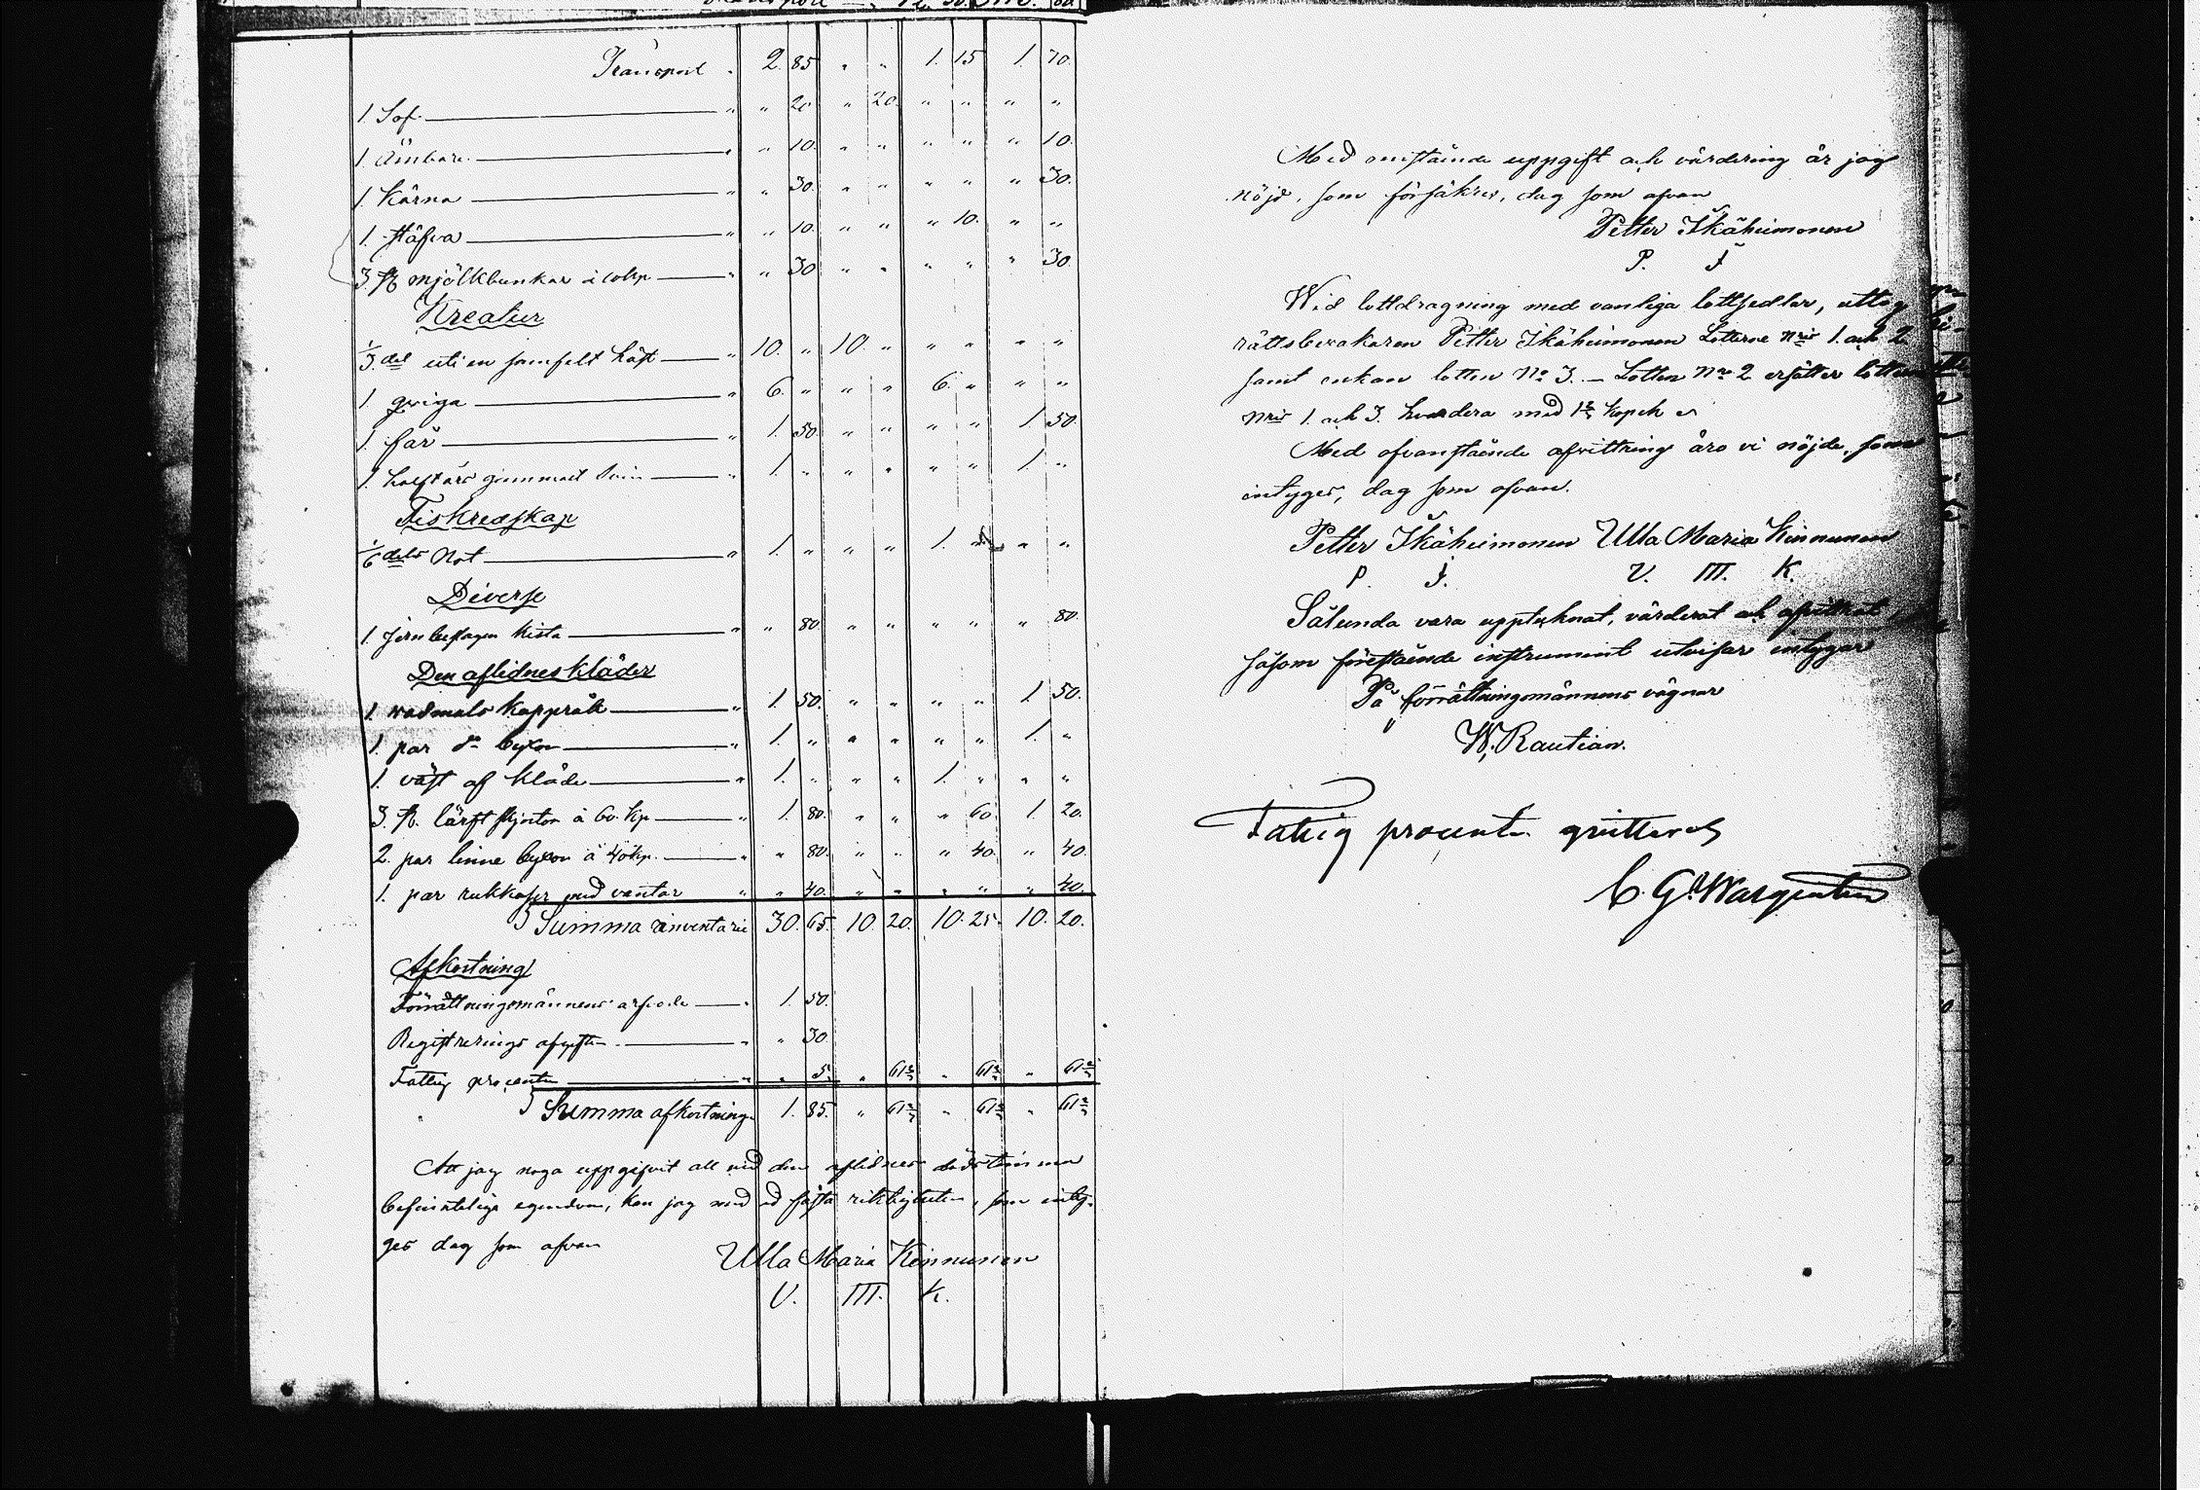 Transport " 2. 85 " " 1. 15 1. 70.
1. Sof " " 20 " 20. " " " "
1. Ämbare " " 10. " " " " " 10.
1. Kärna " " 30. " " " " " 30.
1. stäfva " " 10. " " " 10. " "
3. st. mjölkbunkar à 10 kp " " 30 " " " " " 30.
Kreatur
1/3 del uti en samfelt häst " 10. " 10. " " " " "
1 qviga " 6. " " " 6. " " "
1. får " 1. 50. " " " " 1. 50.
1. halft års gammalt svin " 1. " " " " " 1. "
Fiskredskap
1/6 dels Not " 1. " " " 1. " " "
Diverse
1. Jernbeslagen kista " " 80 " " " " " 80.
Den aflidnes kläder
1. vadmals kappråk " 1. 50. " " " " 1. 50.
1. par do byxor " 1. " " " " " 1. "
1. väst af kläde " 1. " " " 1. " " "
3. st. lärft skjortor à 60. kp " 1. 80. " " " 60. 1. 20.
2. par linne byxor à 40 kp. " " 80. " " " 40. " 40.
1. par rukkaser med vantar " " 40. " " " " " 40.
Summa inventarie 30. 65. 10. 20. 10. 25. 10. 20.
Afkortning
Förrättningsmännens arfvode " 1. 50.
Registrerings afgiften " " 30
Fattig procenten " " 5. " 61 2/3 " 61 2/3 " 61 2/3
Summa afkortning 1. 85. " 61 2/3 " 61 2/3 " 61 2/3
Att jag noga uppgifvit all vid den aflidnes dödstimma
befintelige egendom, kan jag med ed fästa riktigheten, som inty-
ges dag som ofvan
Ulla Maria Kinnunen
U. M. K.
Med omstående uppgift och värdering är jag
nöjd, som försäkras, dag som ofvan
Petter Ikäheimonen
P. I.
Wid lottdragning med vanliga lottsedlar, uttog
rättsbevakaren Petter Ikäheimonen Lotterne Nris 1. och 2.
samt enkan lotten No 3. – Lotten Nro 2 ersätter lotterne
Nris 1. och 3. hvardera med 1 2/3 kopek er
Med ofvanstående afvittring äro vi nöjde, som
intyges, dag som ofvan.
Petter Ikäheimonen Ulla Maria Kinnunen
P. I. U. M. K.
Sålunda vara upptecknat, värderat och afvittrat
såsom förestående instrument utvisar intygar
På förrättningsmännens vägnar
W. Rautian.
Fattig procenten qvitteras
C. G. Wargentin